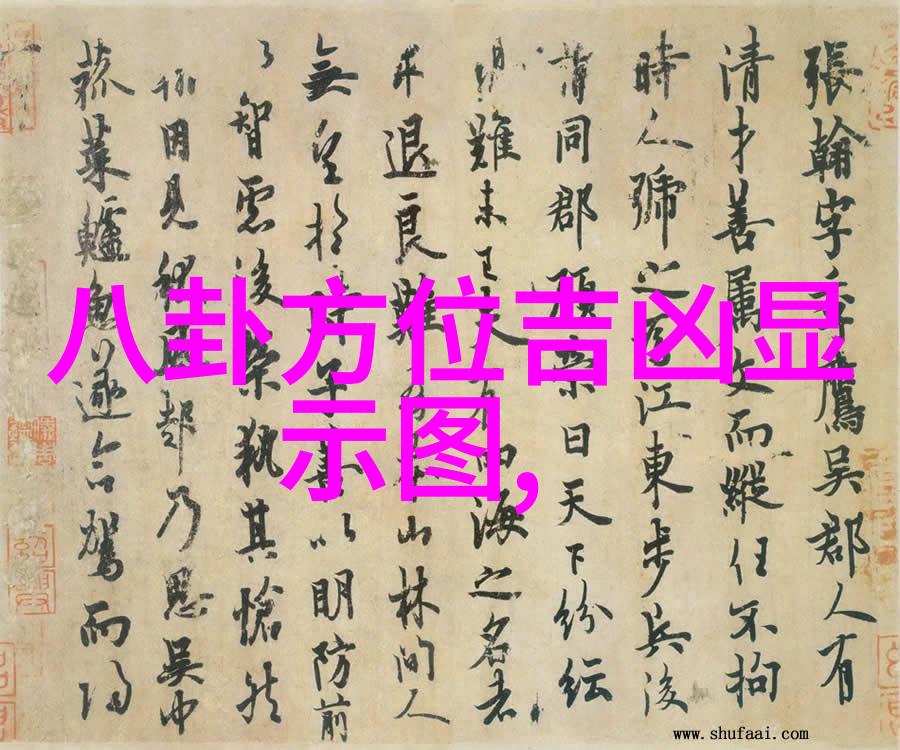 八卦方位吉凶显
示图,
張翰字鷹吳郡人有
清才善屬文而縱任不拘
時人號之江東步兵後
同郡顧榮曰天下紛紜
難未已夫有四海之名者
求退良難山林間人
無望於時子善以明防前
智慮後榮執其愴然
因見秋風起乃思吳中
菰菜鱸魚遂命駕而歸
www.shufaai.com